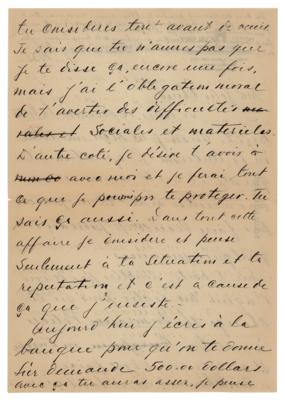 tu considères tout avant de venir
Je sais que tu n'aimes pas que
je te disse ça, encore une fois,
mais j'ai l'obligation moral
de t'avertir des difficultés
sociales et materieles.
D'autre coté, je désire t'avoir à
avec moi et je ferai tout
ce que je pour te proteger. Tu
sais ça aussi. Dans tout cette
affaire je considere et pense
seulement à ta situation et ta
reputation et c'est à cause de
ça que j'insiste.
Aujourd'hui j'écris à la
banque pour qu'on te donne
sur demande 500.00 dollars
avec ça tu auras assez, je pense